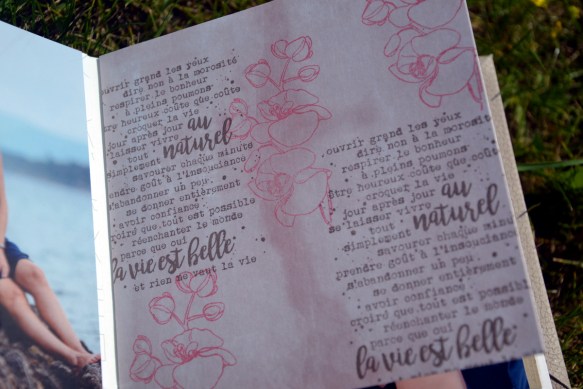 ouvrir grand les yeux
dire non à la morosité
respirer le bonheur
à pleins poumons
être heureux coûte que coûte
croquer la vie
jour après jour au
laisser vivre
tout naturel
simplement
savourer chaque minute
endre goût à l'insouciance
s'abandonner un peu
se donner entièrement
avoir confiance
croire que tout est possible
réenchanter le monde
parce que oui
la vie est belle
et rien ne vaut la vie
ouvrir grand les yeux
dire non à la morosité
respirer le bonheur
à pleins poumons
être heureux coûte que coûte
croquer la vie
jour après jour au
se laisser vivre
tout naturel
simplement
savourer chaque minute
prendre goût à l'insouciance
s'abandonner un peu
se donner entièrement
avoir confiance
croire que tout est possible
réenchanter le monde
parce que oui
la vie est belle